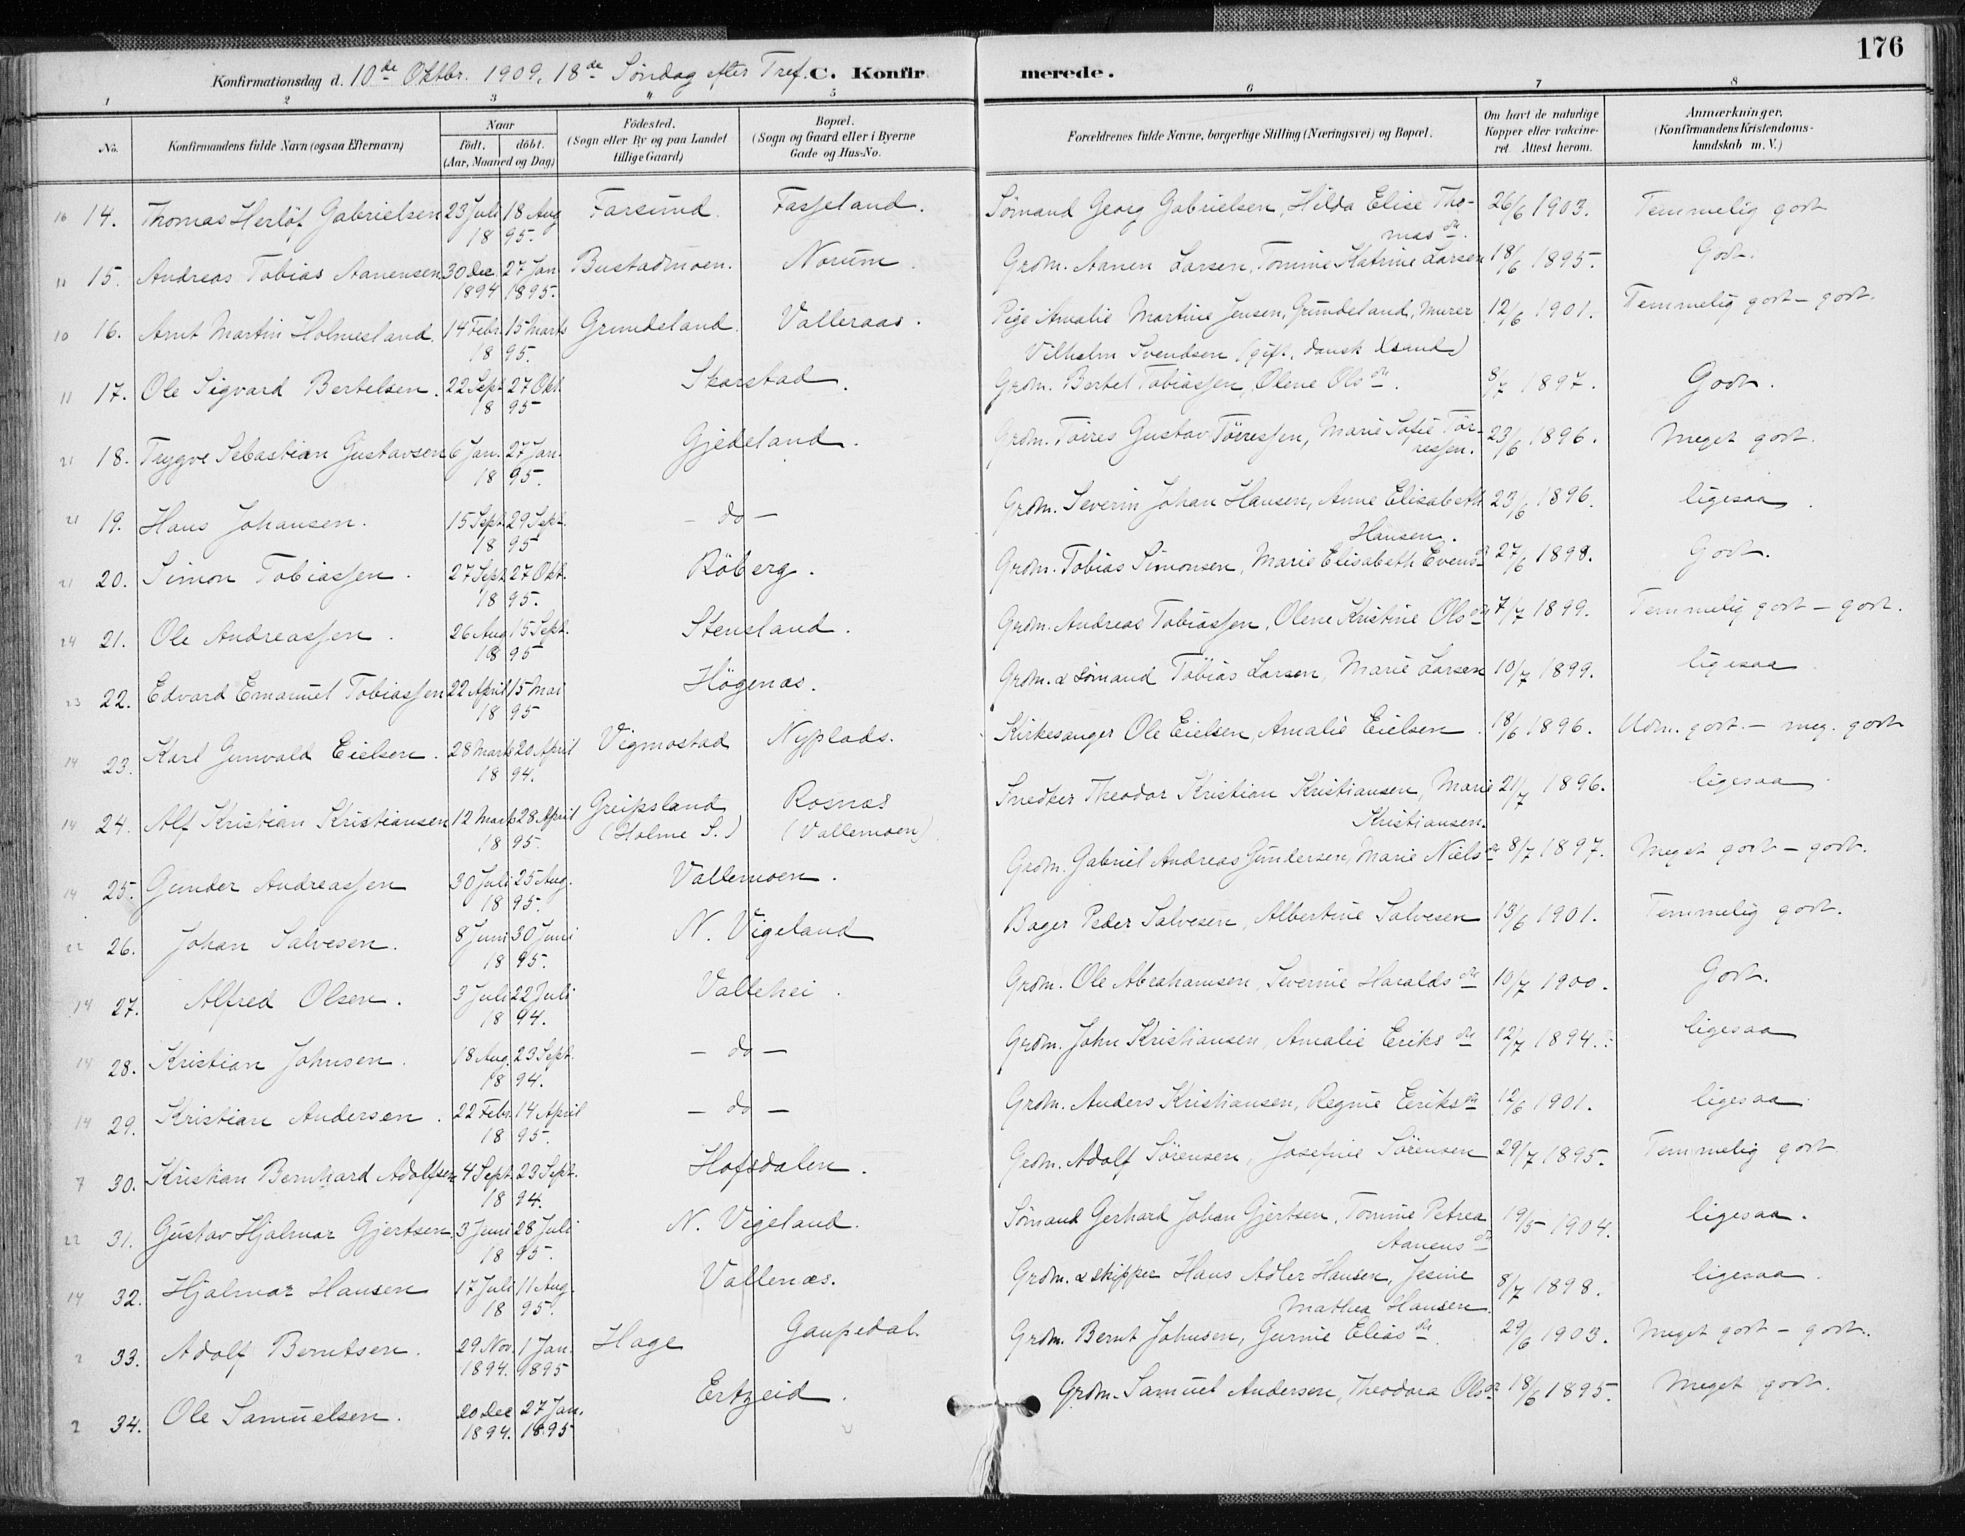 176
Konfirmationsdag d. 10de Oktbr. 1909. 18de Søndag efter Tref. C. Konfirmerede.
1 2 3 4 5 6 7 8
No. Konfirmandens fulde Navn (ogsaa Efternavn) Naar født. døbt. (Aar, Maaned og Dag) Fødested. (Sogn eller By og paa Landet tillige Gaard) Bopæl. (Sogn og Gaard eller i Byerne Gade og Hus-No. Forældrenes fulde Navne, borgerlige Stilling (Næringsvei) og Bopæl. Om havt de naturlige Kopper eller vakcineret. Attest herom. Anmærkninger. (Konfirmandens Kristendomskundskab m. V.)
16 14. Thomas Herløf Gabrielsen 23 Juli 18 Aug 1895. Farsund. Fasseland. Sømand Georg Gabrielsen, Hilda Elise Thomasdtr. 26/6 1903. Temmelig godt
11 15. Andreas Tobias Aanensen 30 Dec. 1894 27 Jan 1895. Bustadmoen. Norum. Grdm. Aanen Larsen, Tomine Katrine Larsen 18/6 1895. Godt.
10 16. Arnt Martin Holmesland. 14 Febr. 15 Marts 1895. Grundeland. Valleraas. Pige Amalie Martine Jensen, Grundeland, Murer 12/6 1901. Temmelig godt - godt.
Vilhelm Svendsen (gift, dansk Xsand)
11 17. Ole Sigvard Bertelsen. 22 Sept 27 Okt. 1895 Skarstad. Grdm. Bertel Tobiassen, Olene Olsdtr. 8/7 1897. Godt.
21 18. Trygve Sebastian Gustavsen 6 Jan. 27 Jan. 1895. Gjedeland. Grdm. Tørres Gustav Tørressen, Marie Sofie Tørressen. 23/6 1896. Meget godt.
21 19. Hans Johansen. 15 Sept 29 Sept. 1895 - do - Grdm. Severin Johan Hansen, Anne Elisabeth Hansen. 23/6 1896. ligesaa.
21 20. Simon Tobiassen. 27 Sept 27 Okt. 1895. Röberg. Grdm. Tobias Simonsen, Marie Elisabeth Evensdtr 27/6 1898. Godt.
24 21. Ole Andreassen. 26 Aug 15 Sept. 1895 Stensland. Grdm. Andreas Tobiassen, Olene Kristine Olsdtr 7/7 1899. Temmelig godt - godt.
23 22. Edvard Emanuel Tobiassen 22 April 15 Mai 1895 Högenæs. Grdm. & sømand Tobias Larsen, Marie Larsen 10/7 1899. ligesaa
14 23. Karl Gunvald Eielsen. 28 Marts 20 April 1894. Vigmostad Nyplads. Kirkesanger Ole Eielsen, Amalie Eielsen. 18/6 1896. Udm. godt - meg. godt
14 24. Alf Kristian Kristiansen 12 Marts 28 April 1895. Greipsland (Holme S.) Rosnæs (Vallemoen) Snedker Theodor Kristian Kristiansen, Marie Kristiansen. 21/7 1896. ligesaa
14 25. Gunder Andreassen 30 Juli 25 Aug. 1895. Vallemoen. Grdm. Gabriel Andreas Gundersen, Marie Nielsdtr 8/7 1897. Meget godt - godt.
22 26. Johan Salvesen. 8 Juni 30 Juni 1895. N. Vigeland Bager Peder Salvesen, Albertine Salvesen 13/6 1901. Temmelig godt.
14 27. Alfred Olsen. 3 Juli 22 Juli 1894. Vallehei. Grdm. Ole Abrahamsen, Severine Haraldsdtr 10/7 1900. Godt.
14 28. Kristian Johnsen. 18 Aug. 23 Sept. 1894. - do - Grdm. John Kristiansen, Amalie Eriksdtr 12/7 1894. ligesaa
14 29. Kristian Andersen. 22 Febr. 14 April 1895. - do - Grdm. Anders Kristiansen, Regine Eeriksdtr 12/6 1901. ligesaa
7 30. Kristian Bernhard Adolfsen 4 Sept. 23 Sept. 1894. Hofsdalen. Grdm. Adolf Sørensen, Josefine Sørensen 29/7 1895. Temmelig godt
22 31. Gustav Hjalmar Gjertsen. 3 Juni 28 Juli 1895. N. Vigeland. Sømand Gerhard Johan Gjertsen, Tomine Petrea Aanensdtr 19/5 1904. ligesaa.
14 32. Hjalmar Hansen 17 Juli 11 Aug. 1895. Vallenæs. Grdm. & skipper Hans Adler Hansen, Jesine Mathea Hansen. 8/7 1898. ligesaa
2 33. Adolf Berntsen. 29 Nov. 1894. 1 Jan. 1895 Hage Gaupedal. Grdm. Bernt Johnsen, Gurine Eliasdtr. 29/6 1903. Meget godt - godt.
2 34. Ole Samuelsen. 20 Dec 1894. 27 Jan. 1895 Ertzeid. Grdm. Samuel Andersen, Theodora Olsdtr 18/6 1895. Meget godt.